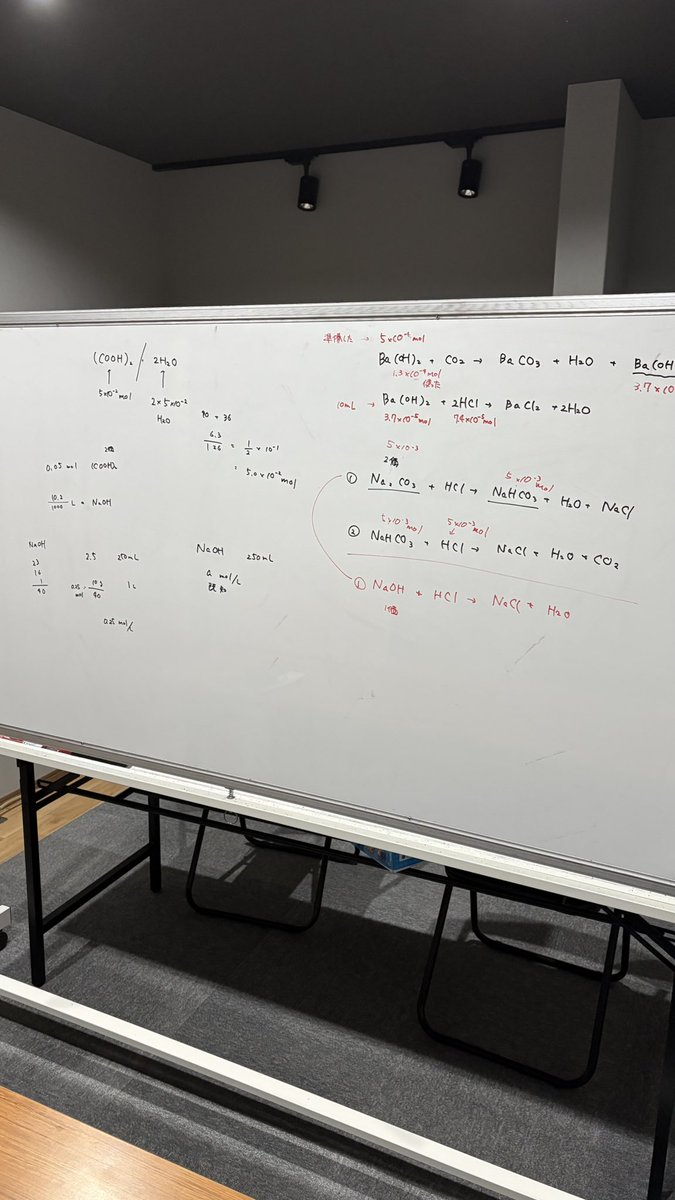 (COOH)₂ / · 2H₂O
↑ ↑
5×10⁻² mol 2 × 5×10⁻²
H₂O
90 + 36
6.3/126 = 1/2 × 10⁻¹
= 5.0×10⁻² mol
2価
0.05 mol (COOH)₂
10.2/1000 L = NaOH
NaOH
23
16
1
40
2.5 250mL
1L
0.25 mol/L
NaOH 250mL
a mol/L
準備した → 5×10⁻⁴ mol
Ba(OH)₂ + CO₂ → BaCO₃ + H₂O + Ba(OH
1.3×10⁻⁴ mol
使った
3.7×10
10mL → Ba(OH)₂ + 2HCl → BaCl₂ + 2H₂O
3.7×10⁻⁵ mol 7.4×10⁻⁵ mol
5×10⁻³
2価
5×10⁻³ mol
① Na₂CO₃ + HCl → NaHCO₃ + H₂O + NaCl
5×10⁻³ mol 5×10⁻³ mol
② NaHCO₃ + HCl → NaCl + H₂O + CO₂
① NaOH + HCl → NaCl + H₂O
1価